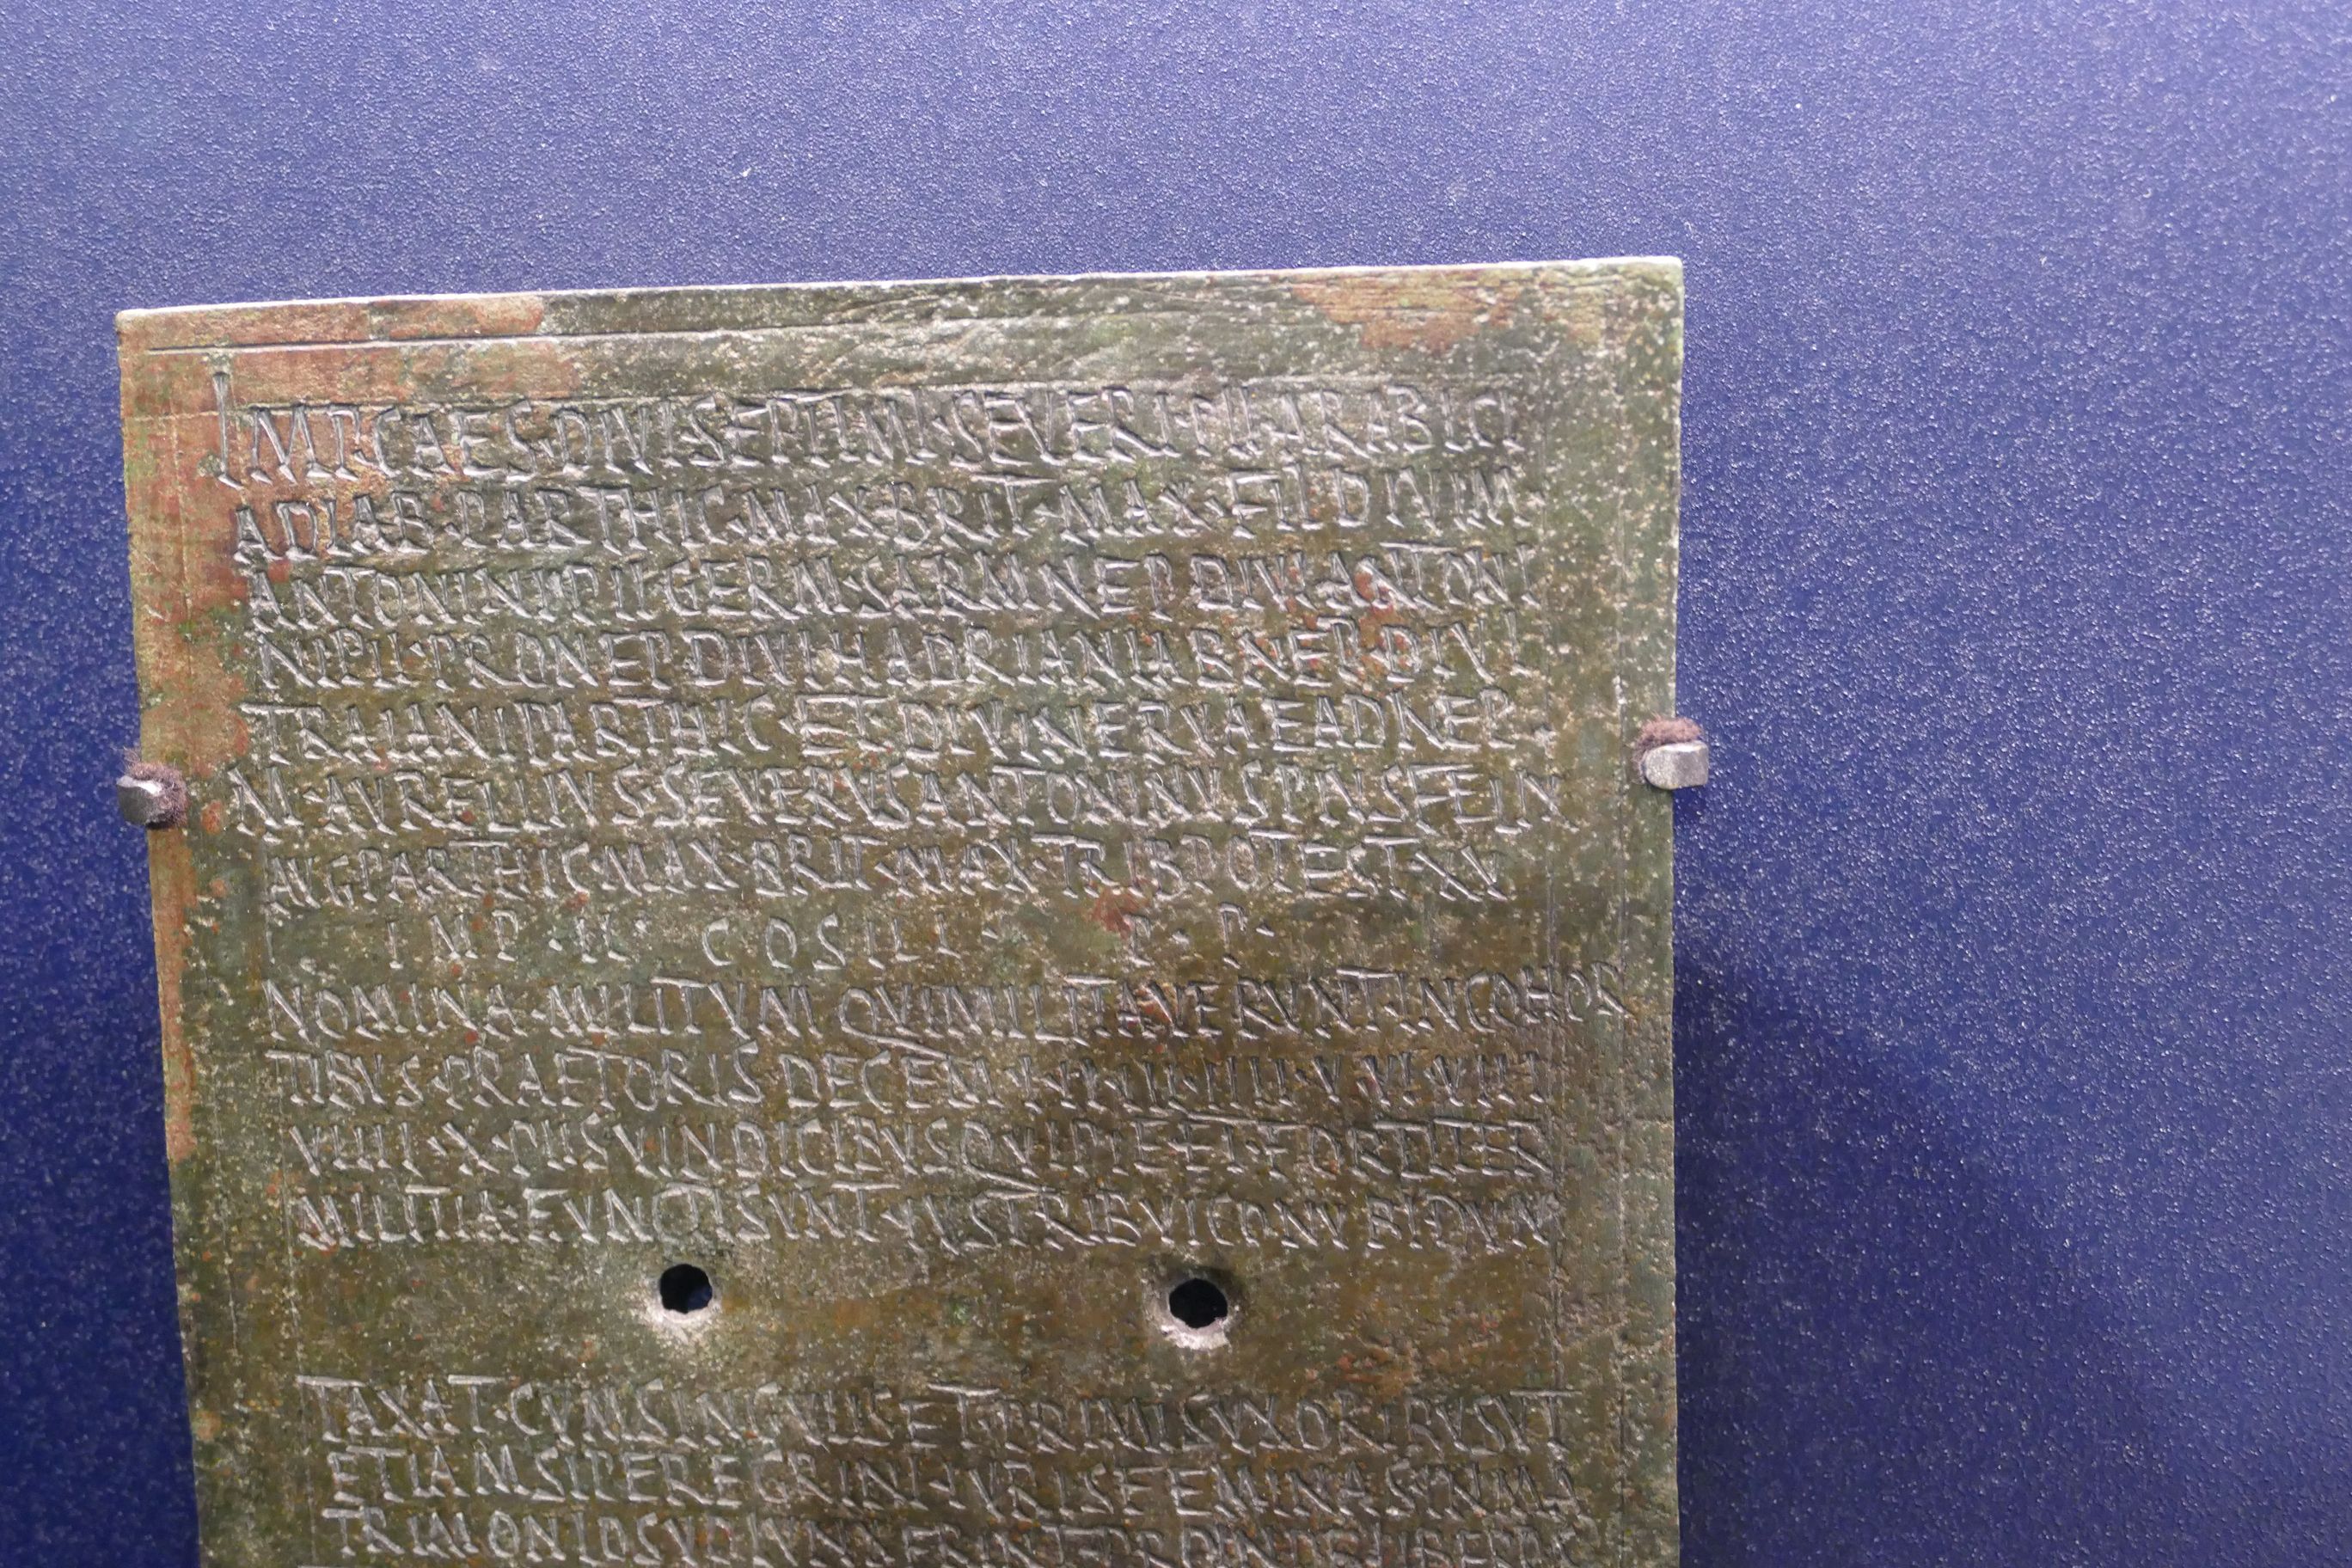 IMP·CAES·DIVI·SEPTIMI·SEVERI·PII·ARABICI
ADIAB·PARTHIC·MAX·BRIT·MAX·FIL·DIVI M·
ANTONINI·PII·GERM·SARM·NEP·DIVI·ANTONI
NI PII·PRONEP·DIVI·HADRIANI ABNEP·DIVI
TRAIANI PARTHIC·ET·DIVI NERVAE ADNEP·
M·AVRELLIVS SEVERVS ANTONINVS PIVS FELIN
AVG PARTHIC·MAX·BRIT·MAX·TRIB POTEST·XV
IMP·II· COS III· P·P·
NOMINA·MILITVM QVI MILITAVERVNT IN COHOR
TIBVS·PRAETORIS DECEM·I·II·III·IIII·V·VI·VII
VIIII·X·PIIS VINDICIBVS QVI PIE·ET·FORTITER
MILITIA·FVNCTI SVNT·IVS TRIBVI CONVBI·DVN
TAXAT·CVM SINGVLIS ET PRIMIS VXORIBVS VT
ETIAM SI PEREGRINI·IVRIS FEMINAS·IN MA
TRIMONIO SVO